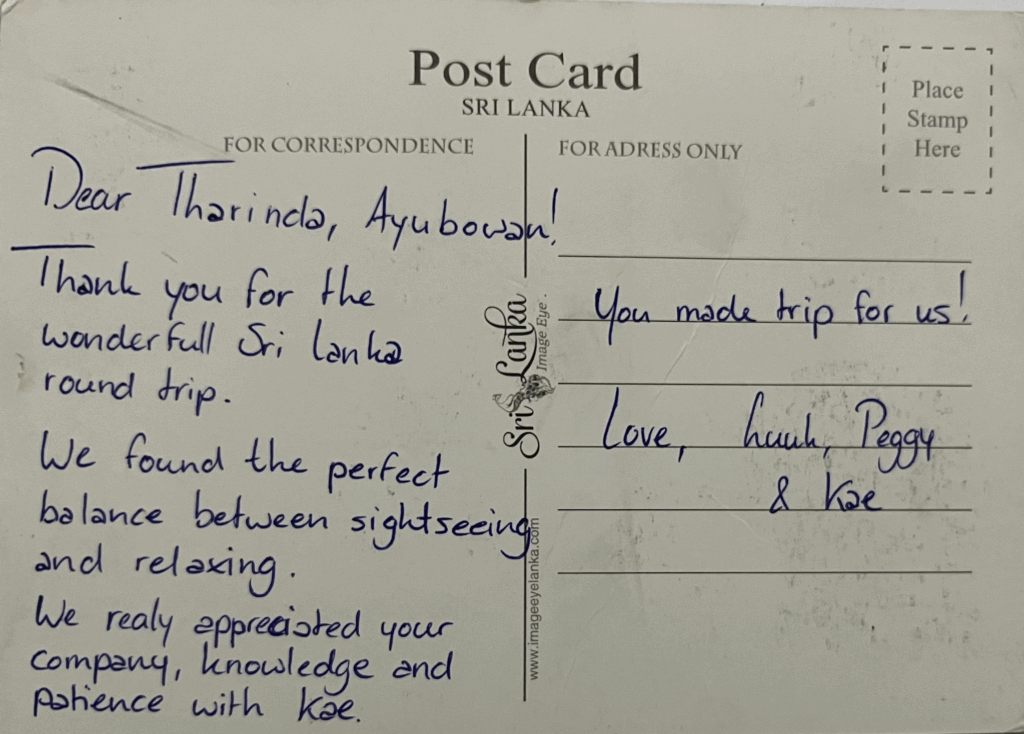 Post Card
SRI LANKA
Place
Stamp
Here
FOR CORRESPONDENCE
FOR ADRESS ONLY
Dear Tharinda, Ayubowan!
Thank you for the
wonderfull Sri Lanka
round trip.
We found the perfect
balance between sightseeing
and relaxing.
We realy appreciated your
company, knowledge and
patience with Kae.
Sri Lanka
Image Eye.
www.imageeyelanka.com
You made trip for us!
Love, Peggy
& Kae